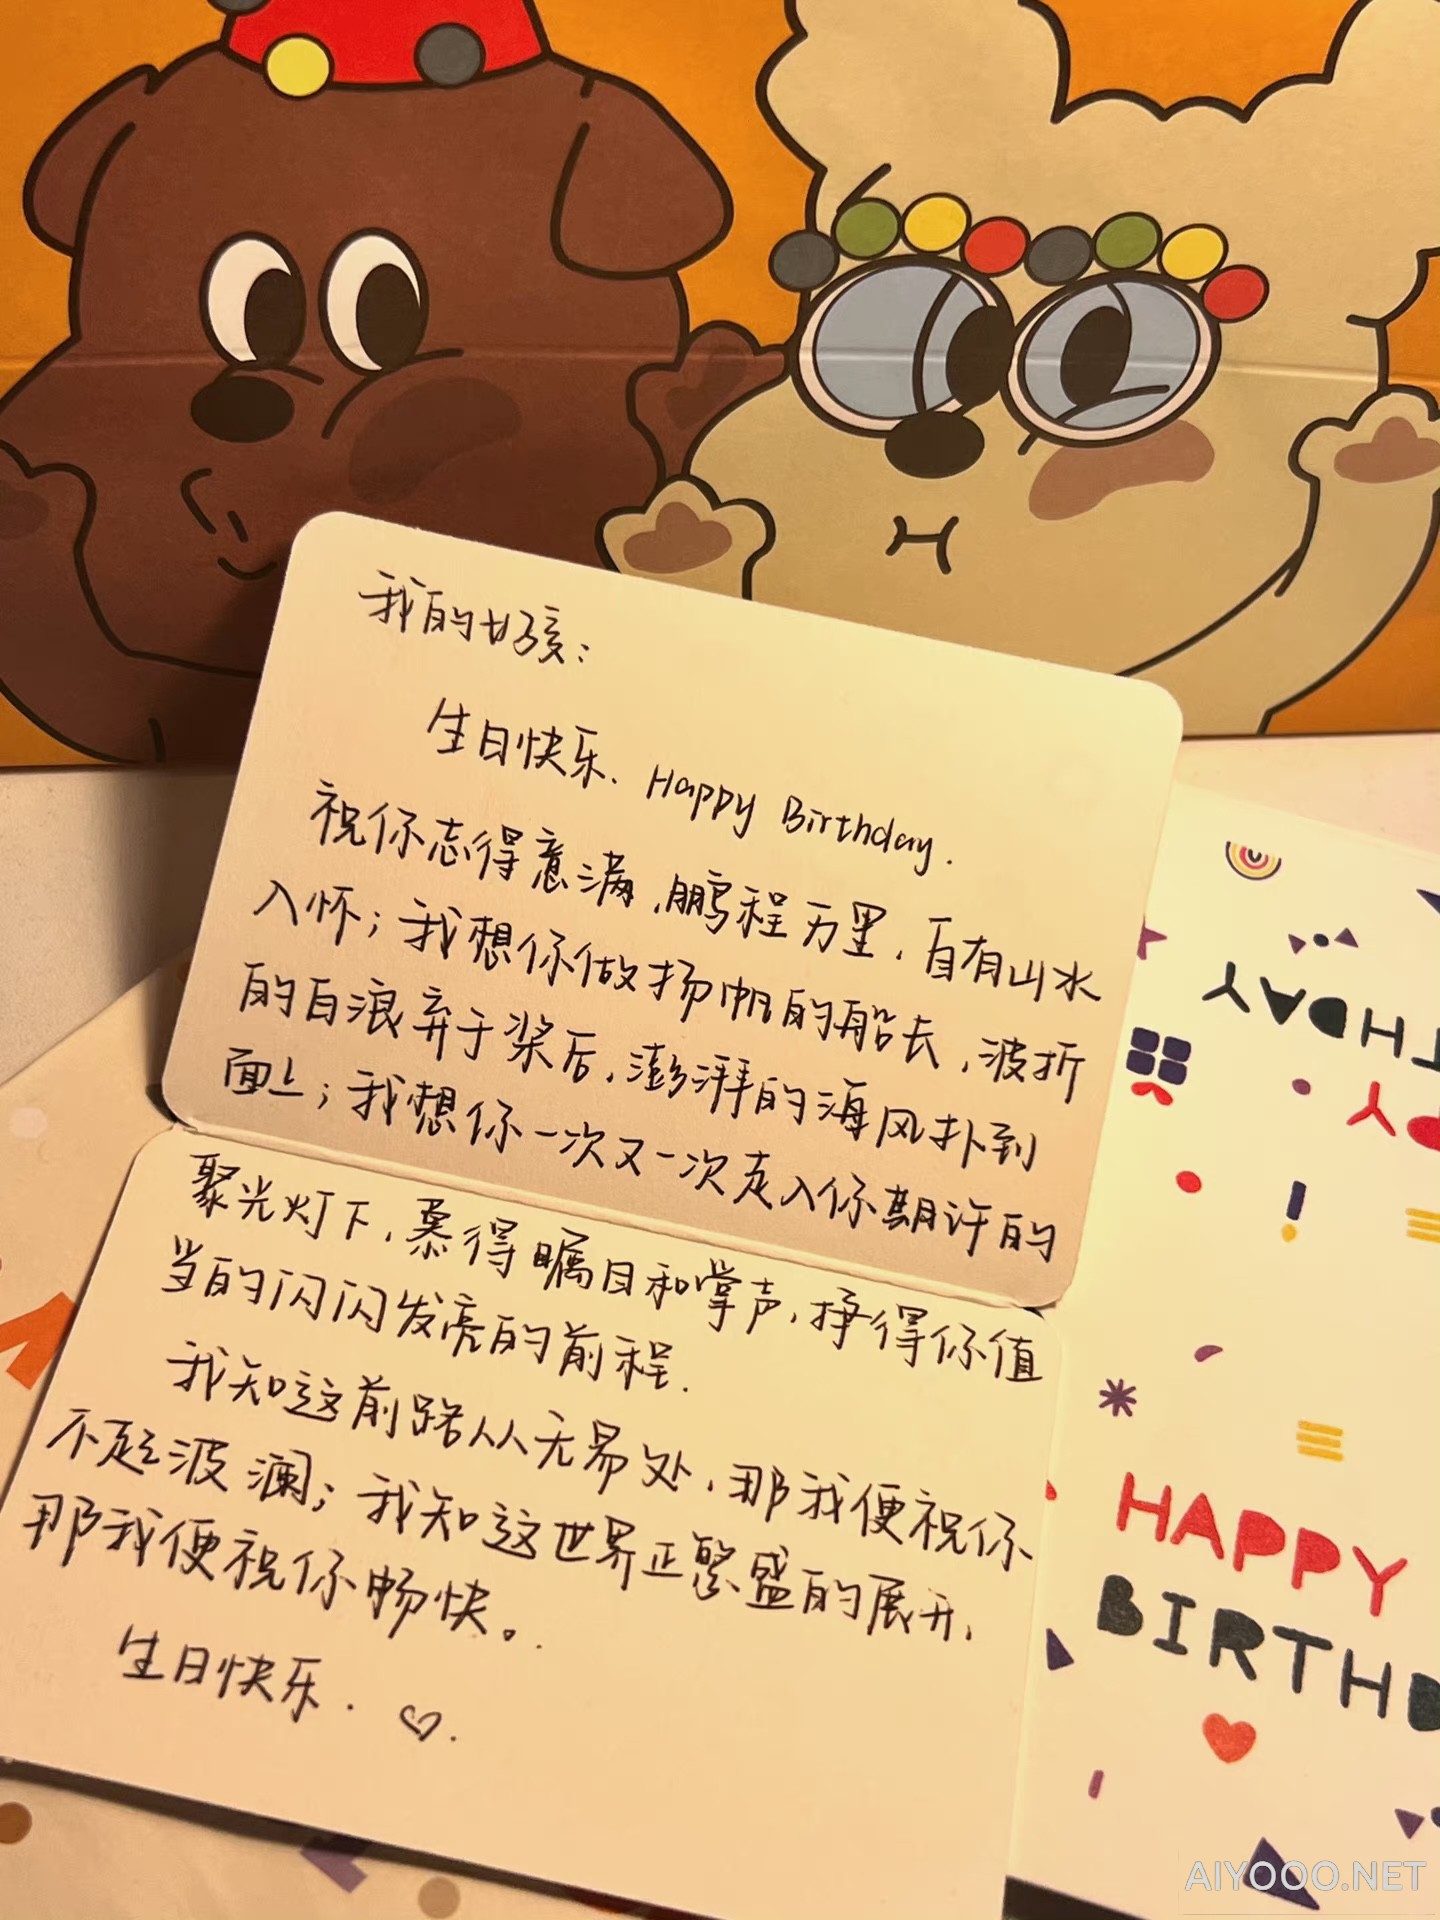 我的好孩：
生日快乐. Happy Birthday.
祝你志得意满,鹏程万里,自有山水
入怀;我想你做扬帆的船长,波折
的白浪弃于桨后,澎湃的海风扑到
面上;我想你一次又一次走入你期许的
聚光灯下,赢得瞩目和掌声,挣得你值
当的闪闪发亮的前程.
我知这前路从无易处,那我便祝你
不起波澜;我知这世界正繁盛的展开,
那我便祝你畅快。.
生日快乐. ♡.
THDAY
PY
HAPPY
BIRTHD
AIYOOO.NET